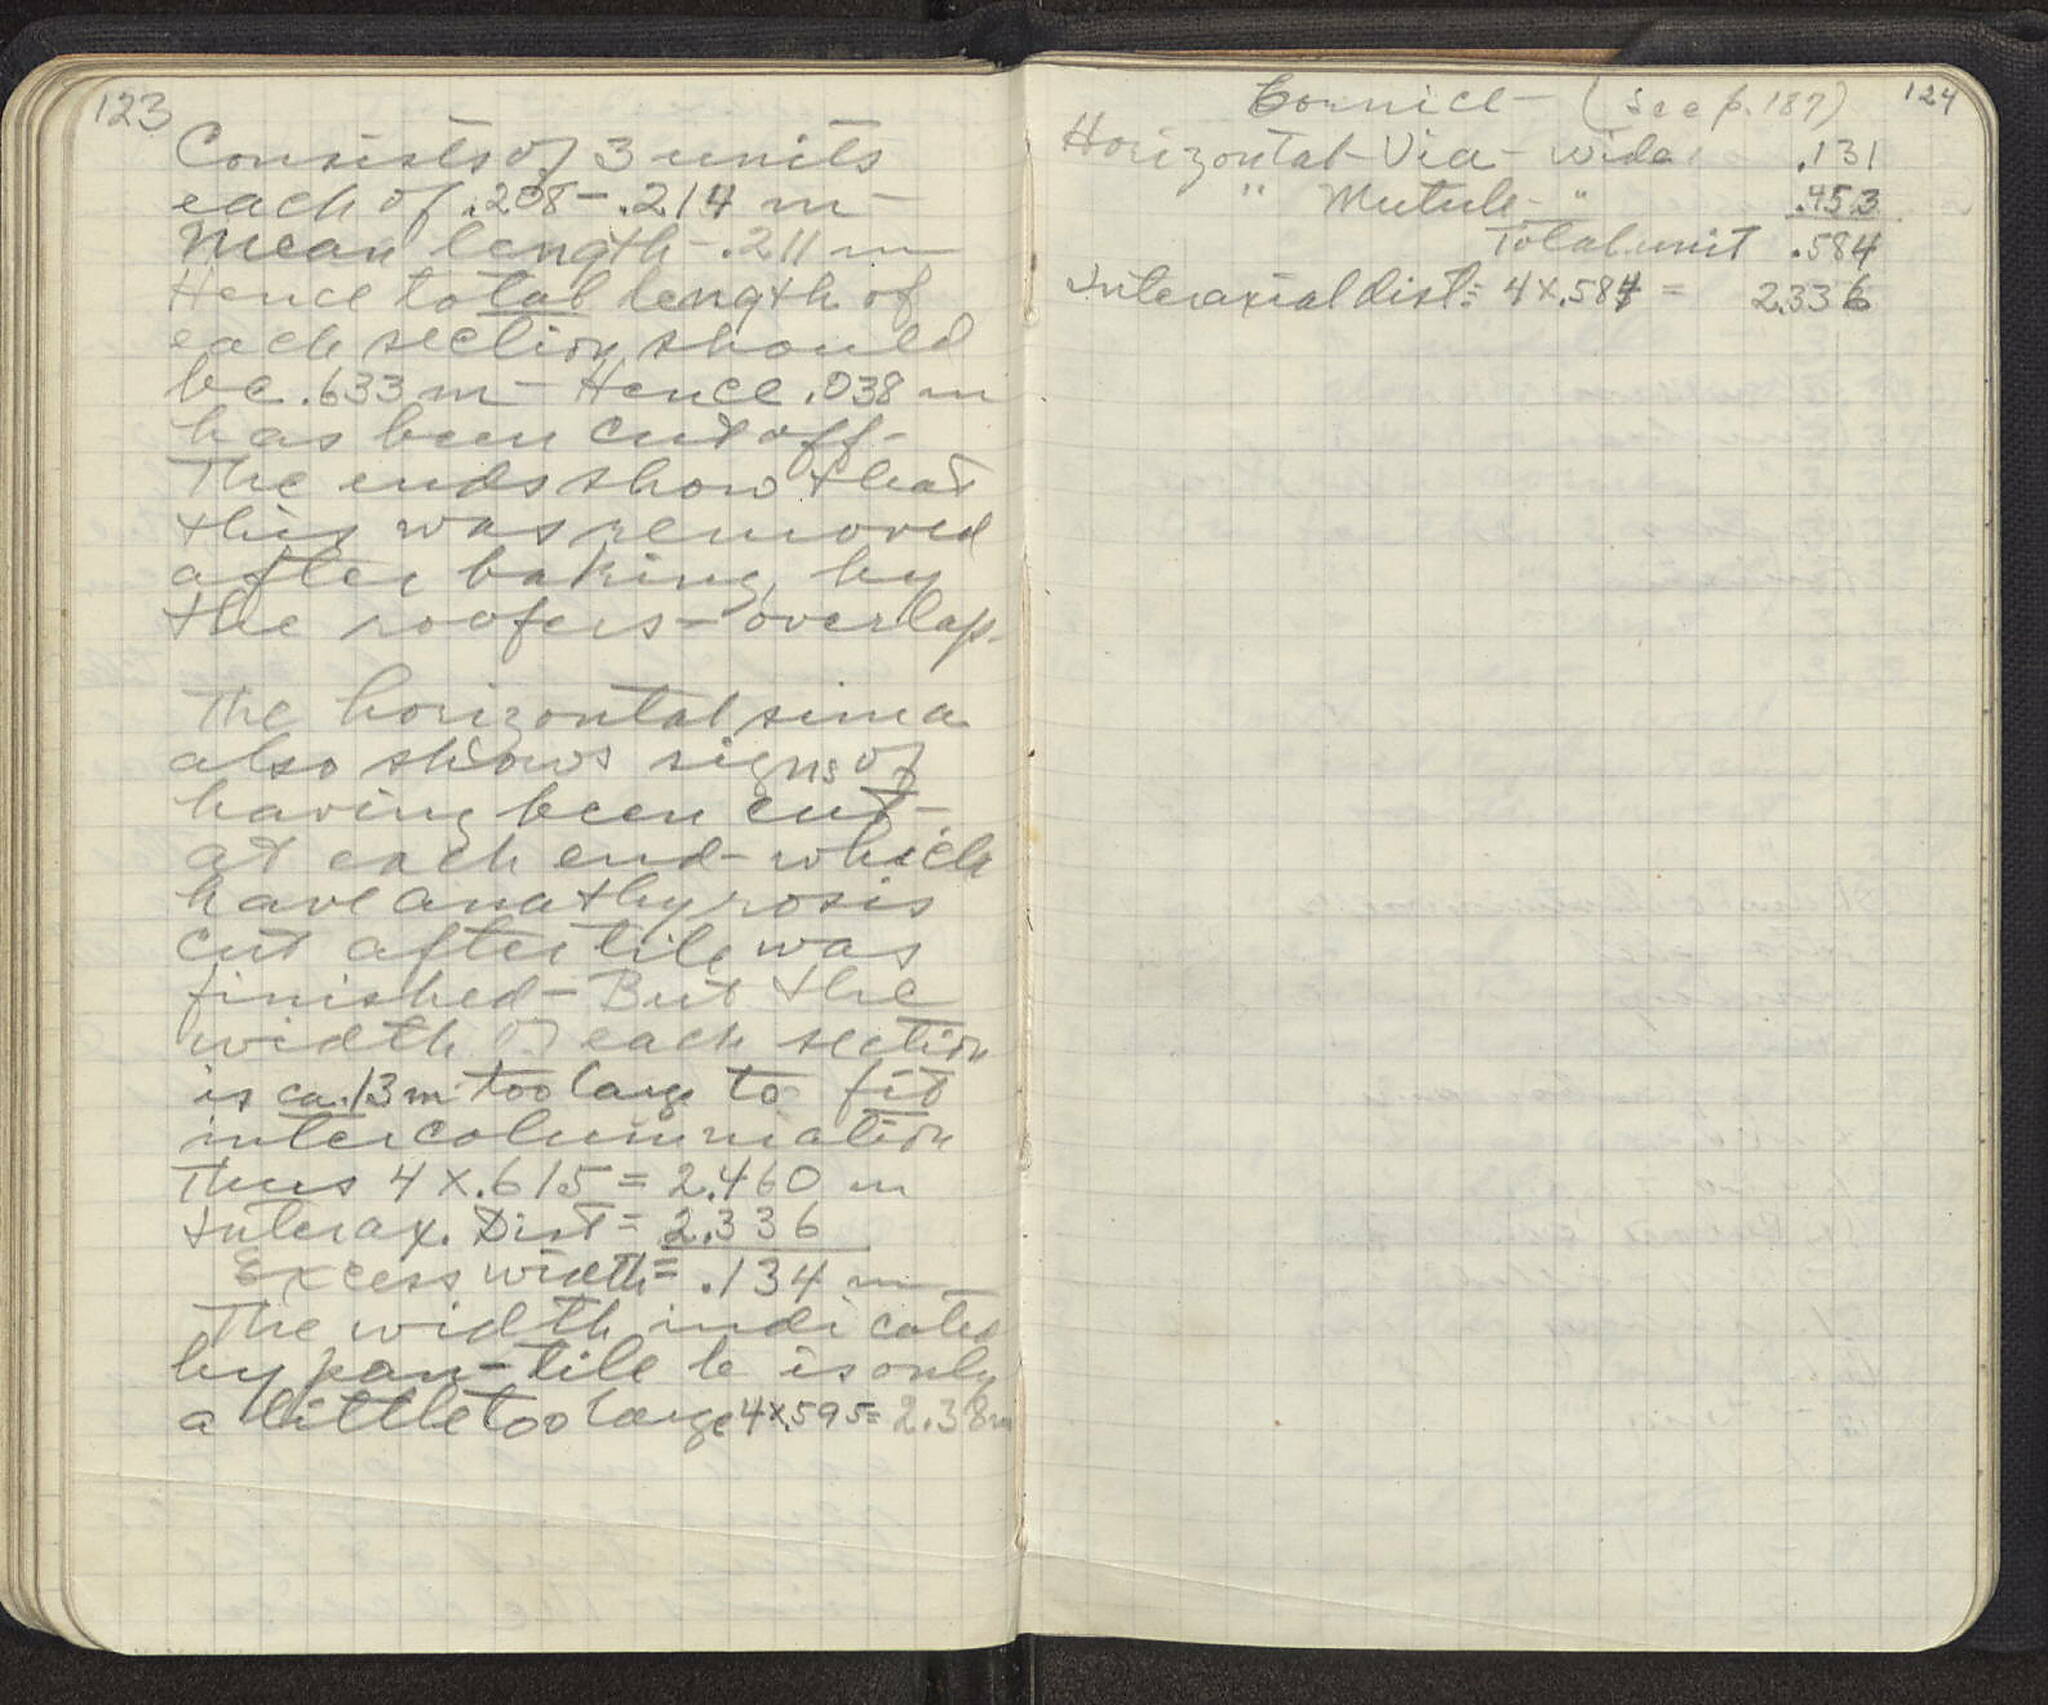 123
Consists of 3 units
each of .208 - .214 m -
Mean length - .211 m
Hence total length of
each section should
be .633 m - Hence .038 m
has been cut off -
The ends show that
this was removed
after baking, by
the roofers - overlap.
The horizontal sima
also shows signs of
having been cut -
at each end - which
have anathyrosis
cut after tile was
finished - But the
width of each section
is ca .13 m too large to fit
intercolumniation
Thus 4 x .615 = 2.460 m
Interax. Dist = 2.336
Excess width = .134 m
The width indicated
by pan-tile b is only
a little too large 4 x .595 = 2.38 m
124
Cornice - (See p. 187)
Horizontal - Via - wide .131
" Mutule - " .453
Total unit .584
Interaxial dist = 4 x .584 = 2.336